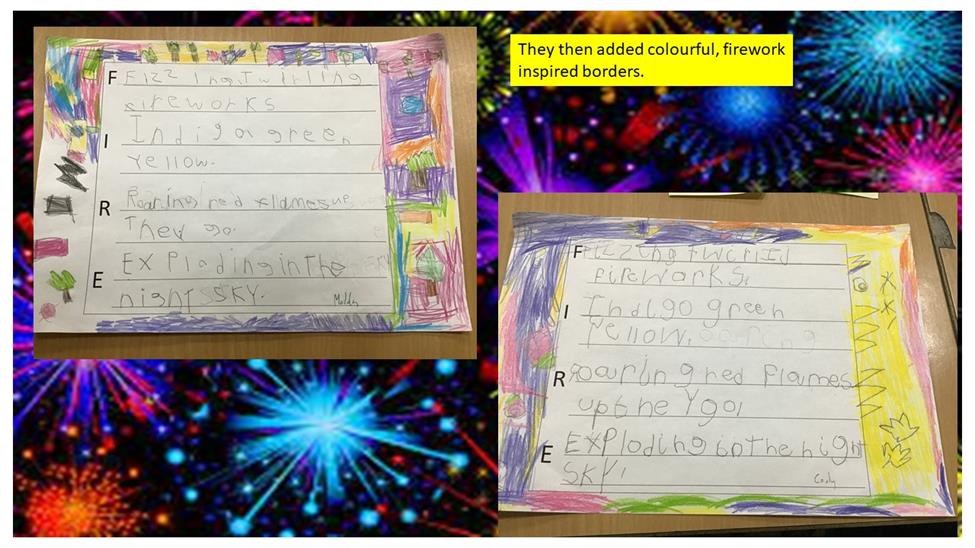 They then added colourful, firework
inspired borders.
F Fizz ing Twirling
fireworks
I Indigo green
Yellow.
R Roaring red flames up
They go.
E EXPlodinginthe
night SKY.
F Fizzing twirlis
fireworks.
I Indigo green
Yellow.
R Roaring red Flames
up the Y go,
E EXPloding in the nighT
SKY.
Cody